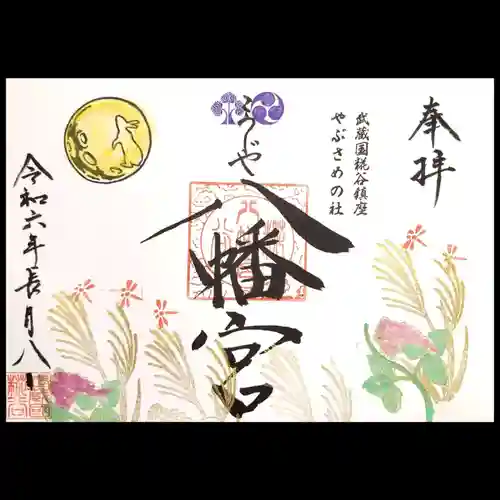 奉拝
武蔵国糀谷鎮座
やぶさめの社
こうじや
八幡宮
令和六年長月八